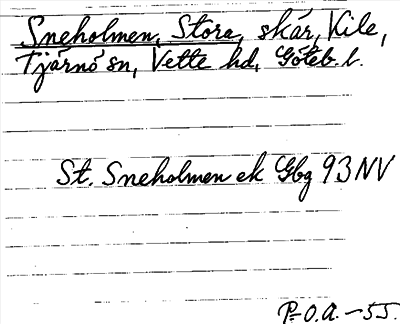 Sneholmen, Stora, skär, Kile,
Tjärnö sn, Vette hd, Göteb. l.
St. Sneholmen ek Gbg 93 NV
P-O.A. -55.